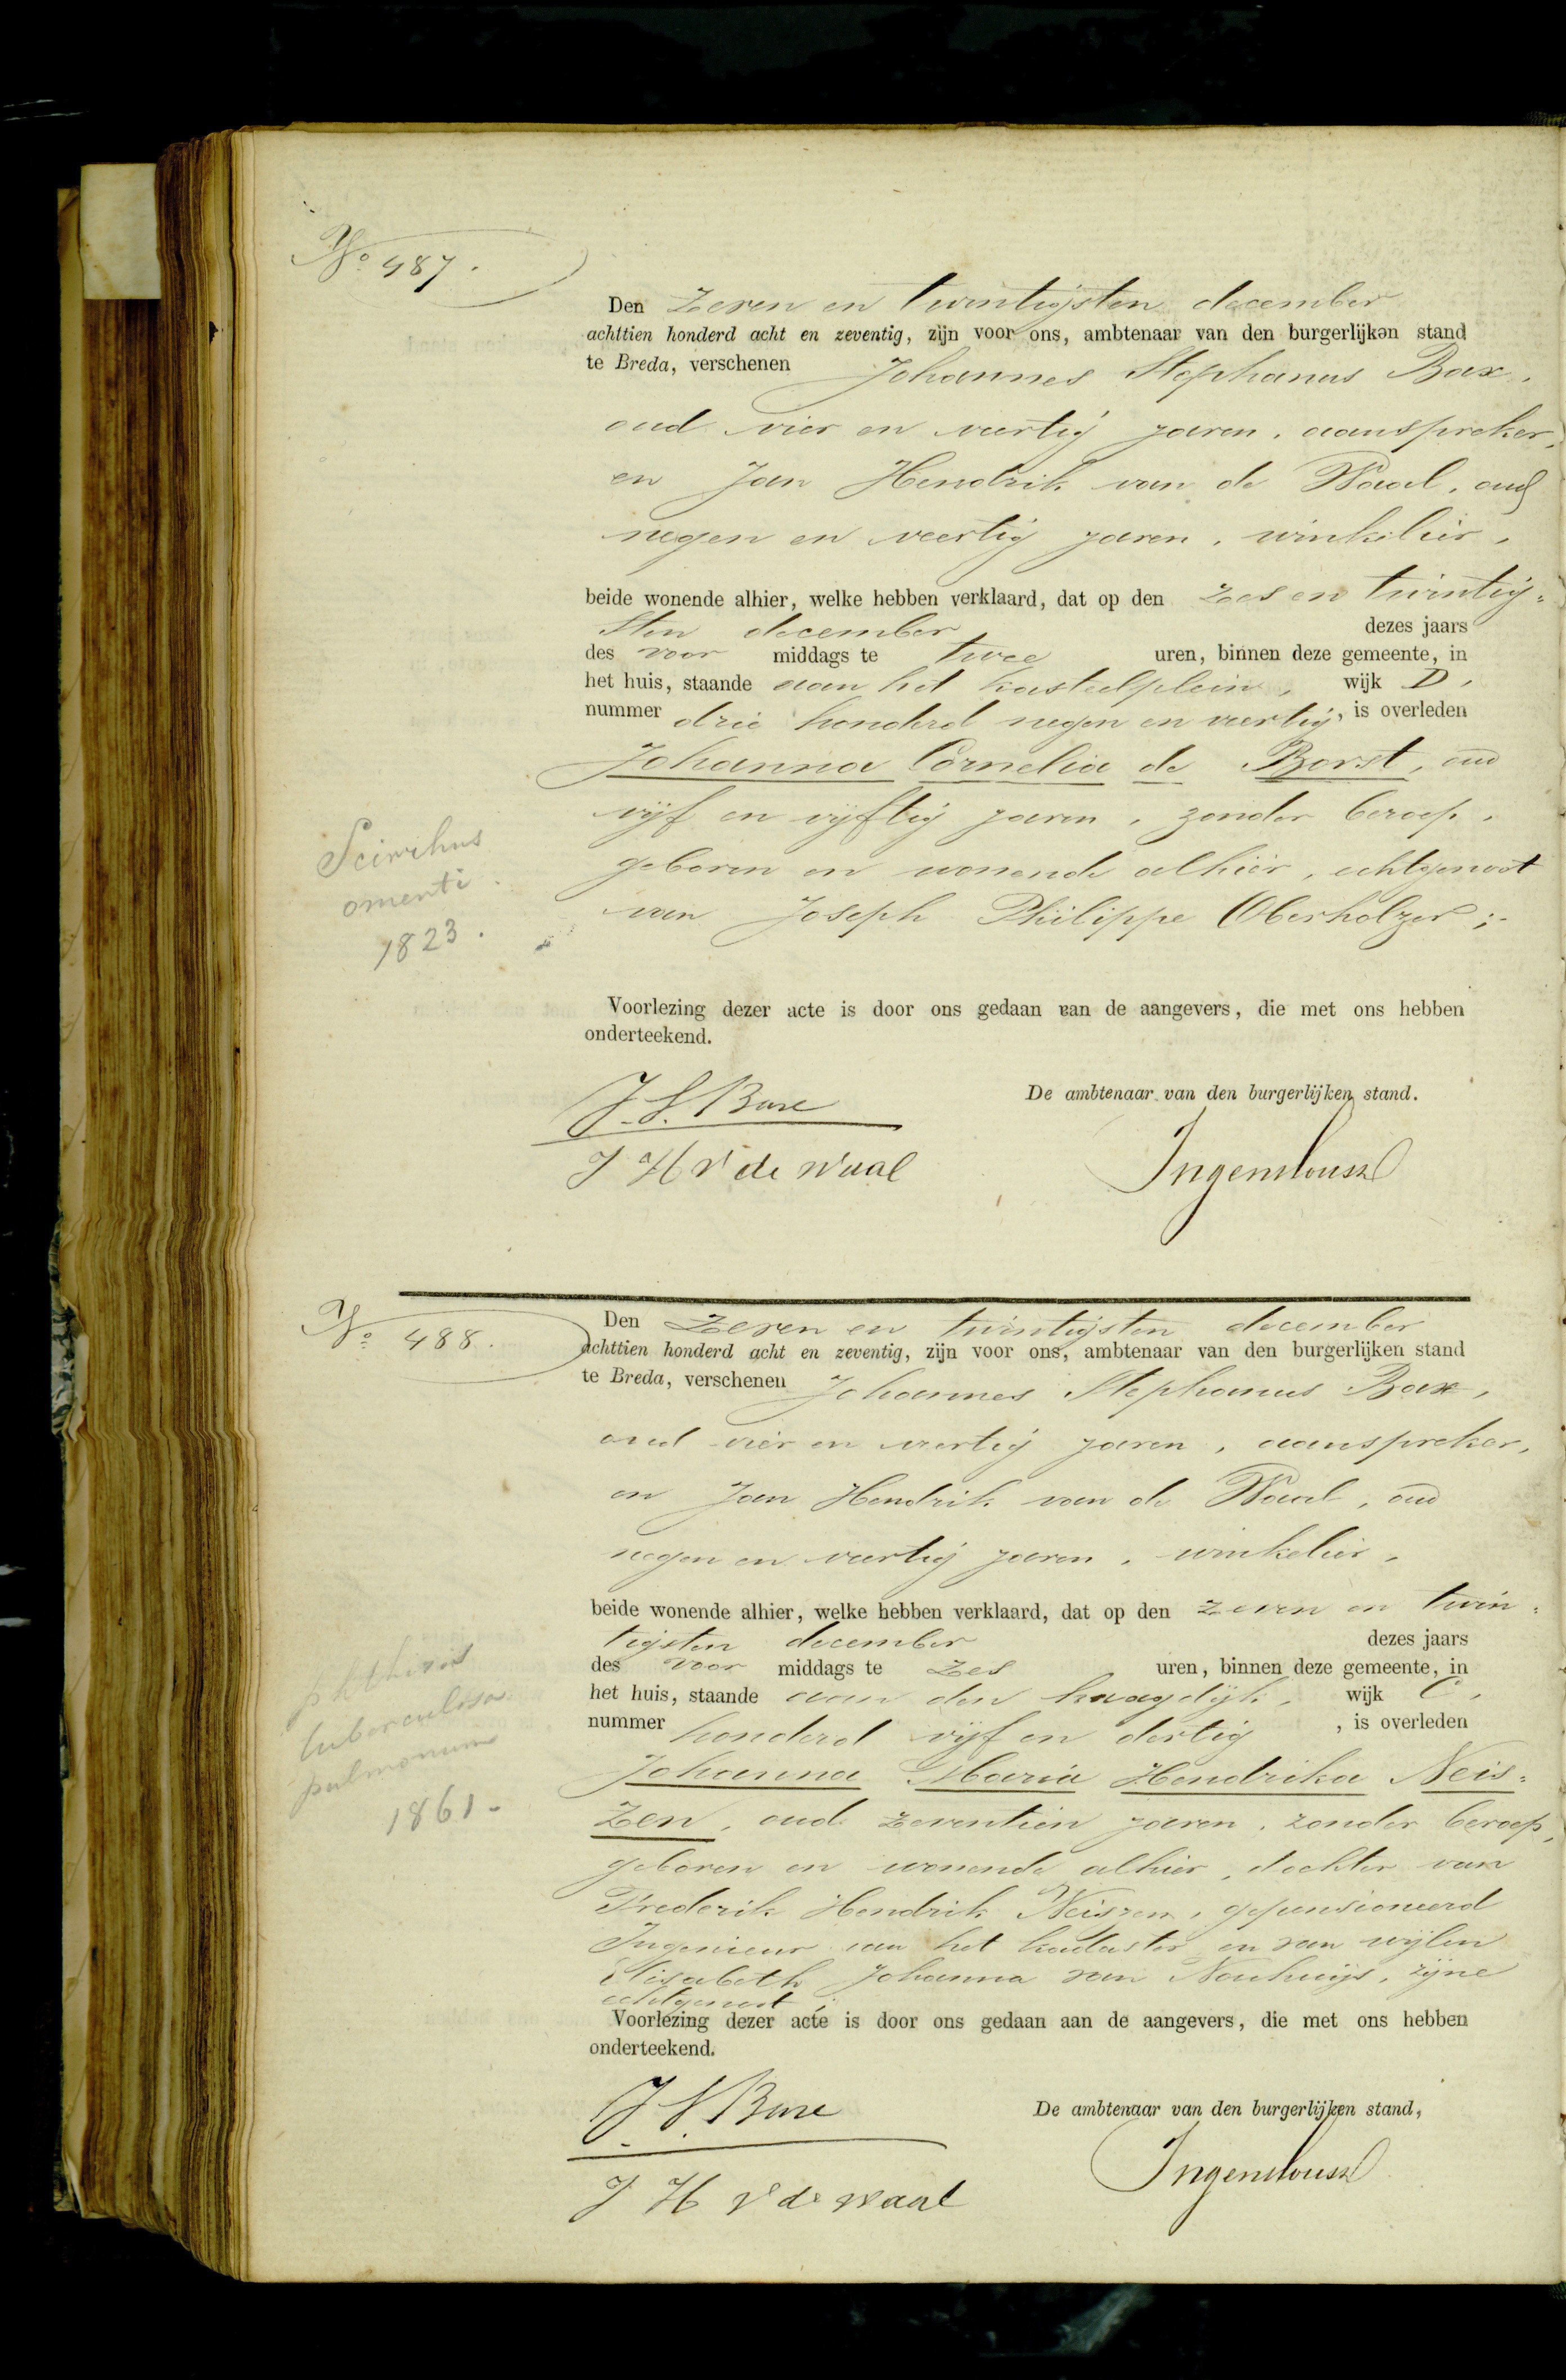 No. 487.
Den zeven en twintigsten december
achttien honderd acht en zeventig, zijn voor ons, ambtenaar van den burgerlijken stand
te Breda, verschenen Johannes Stephanus Bax,
oud vier en veertig jaren, aanspreker,
en Jan Hendrik van de Waal, oud
negen en veertig jaren, winkelier,
beide wonende alhier, welke hebben verklaard, dat op den zes en twintig-
sten december dezes jaars
des voor middags te twee uren, binnen deze gemeente, in
het huis, staande aan het kasteelplein, wijk D,
nummer drie honderd negen en veertig, is overleden
Johanna Cornelia de Borst, oud
vijf en vijftig jaren, zonder beroep,
geboren en wonende alhier, echtgenoot
van Joseph Philippe Oberholzer;-
Scirrhus
omenti.
1823.
Voorlezing dezer acte is door ons gedaan van de aangevers, die met ons hebben
onderteekend.
De ambtenaar van den burgerlijken stand.
J. S. Bax
J H v de Waal
Ingenhousz
No. 488.
Den zeven en twintigsten december
achttien honderd acht en zeventig, zijn voor ons, ambtenaar van den burgerlijken stand
te Breda, verschenen Johannes Stephanus Bax,
oud vier en veertig jaren, aanspreker,
en Jan Hendrik van de Waal, oud
negen en veertig jaren, winkelier,
beide wonende alhier, welke hebben verklaard, dat op den zeven en twin-
tigsten december dezes jaars
des voor middags te zes uren, binnen deze gemeente, in
het huis, staande aan den haagdijk, wijk C,
nummer honderd vijf en dertig, is overleden
Johanna Maria Hendrika Neis-
zen, oud zeventien jaren, zonder beroep,
geboren en wonende alhier, dochter van
Frederik Hendrik Neiszen, gepensioneerd
Ingenieur van het kadaster en van wijlen
Elisabeth Johanna van Nouhuijs, zijne
echtgenoot;
phthisis
tuberculosa
pulmonum
1861-
Voorlezing dezer acte is door ons gedaan aan de aangevers, die met ons hebben
onderteekend.
De ambtenaar van den burgerlijken stand,
J. S. Bax
J H v de Waal
Ingenhousz